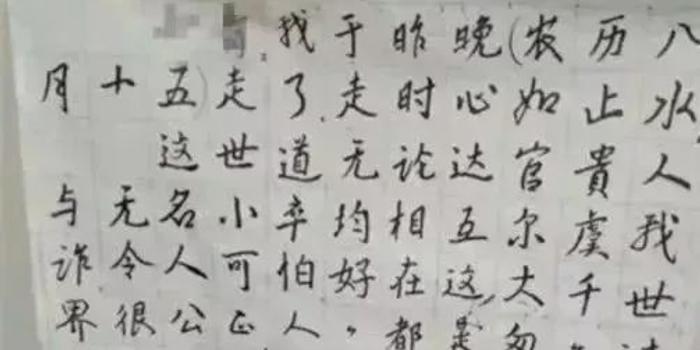 我于昨晚(农历八
月十五)走了,走时心如止水
这世道无论达官貴人
与无名小卒均相互尔虞我
诈令人可怕好在这大千世
界很公正人,都是匆